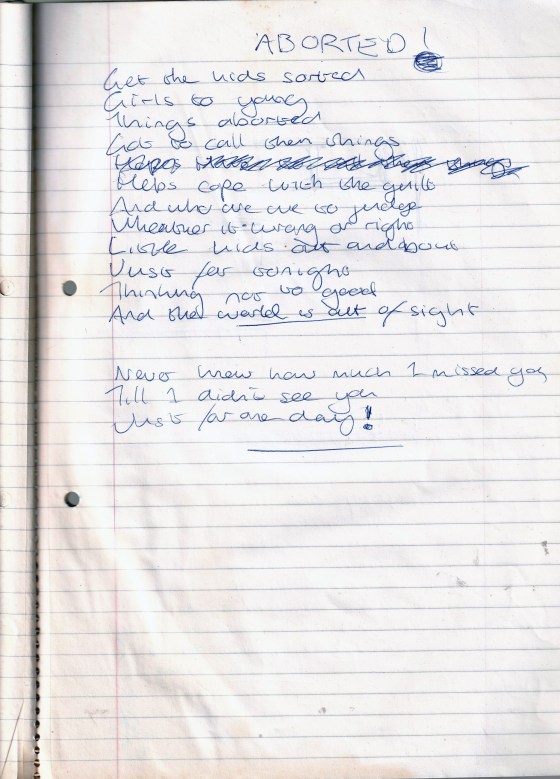 ABORTED!
Get the kids sorted
Girls to young
Things aborted
Got to call them things
Helps cope with the guilt
And who are we to judge
Wheather it wrong or right
Little kids out and about
Just for tonight
Thinking not to good
And the world is out of sight
Never knew how much I missed you
Till I didn't see you
Just for one day!